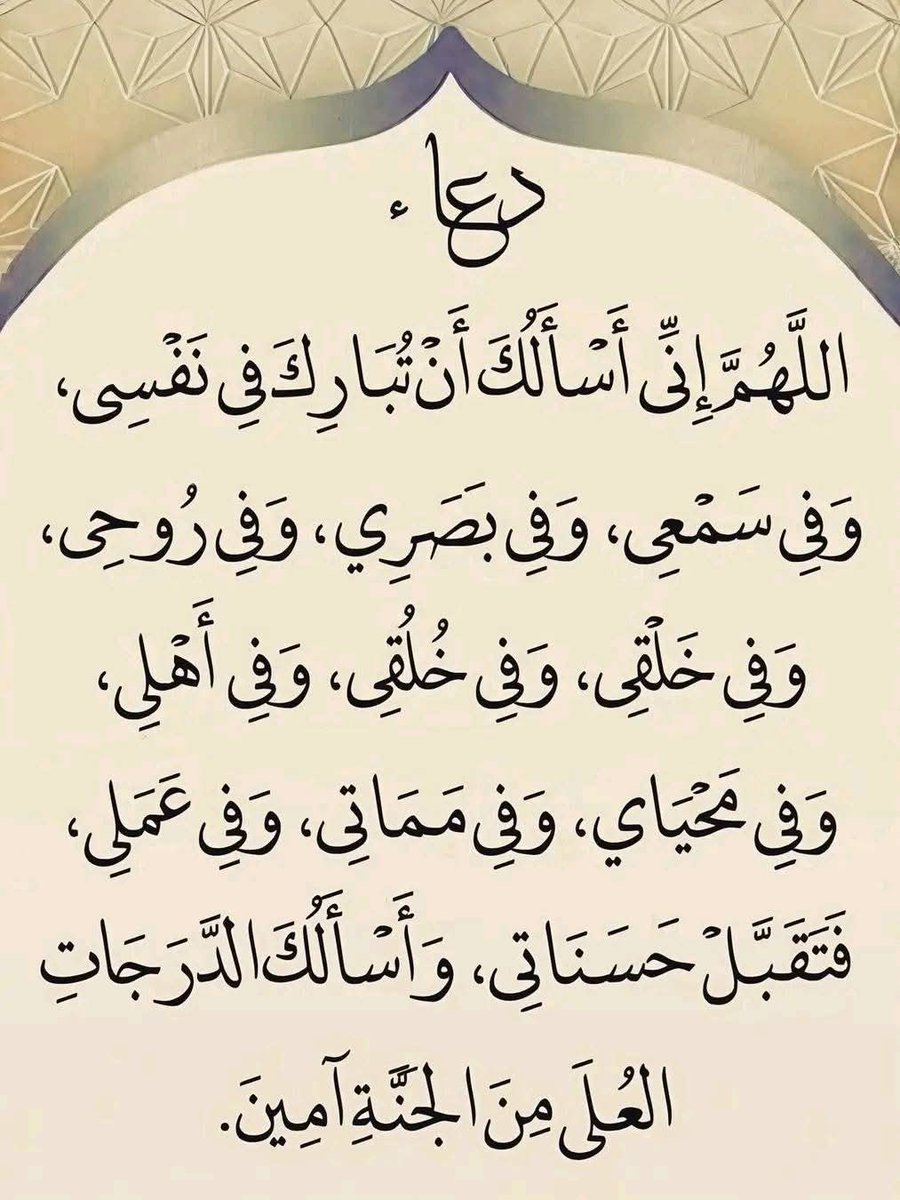 دعاء
اللَّهُمَّ إِنِّى أَسْأَلُكَ أَنْ تُبَارِكَ فِي نَفْسِى،
وَفِي سَمْعِى، وَفِي بَصَرِي، وَفِي رُوحِى،
وَفِي خَلْقِى، وَفِي خُلُقِى، وَفِي أَهْلِي،
وَفِي مَحْيَاي، وَفِي مَمَاتِى، وَفِي عَمَلِي،
فَتَقَبَّلْ حَسَنَاتِى، وَأَسْأَلُكَ الدَّرَجَاتِ
العُلَى مِنَ الجَنَّةِ آمِينَ.